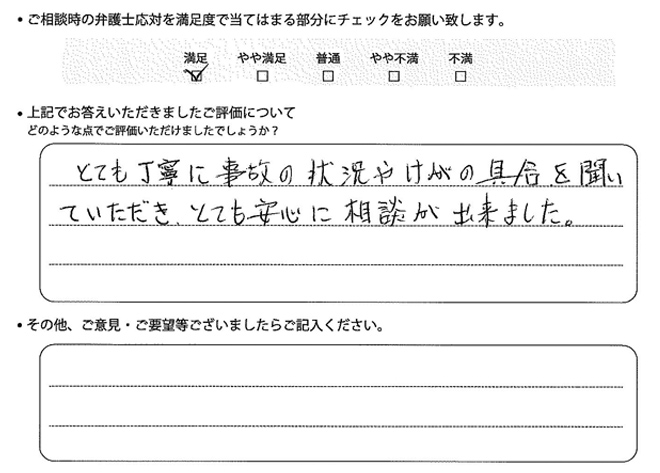 • ご相談時の弁護士応対を満足度で当てはまる部分にチェックをお願い致します。
満足 やや満足 普通 やや不満 不満
☑ ☐ ☐ ☐ ☐
• 上記でお答えいただきましたご評価について
どのような点でご評価いただけましたでしょうか？
とても丁寧に事故の状況やけがの具合を聞い
ていただき、とても安心に相談が出来ました。
• その他、ご意見・ご要望等ございましたらご記入ください。